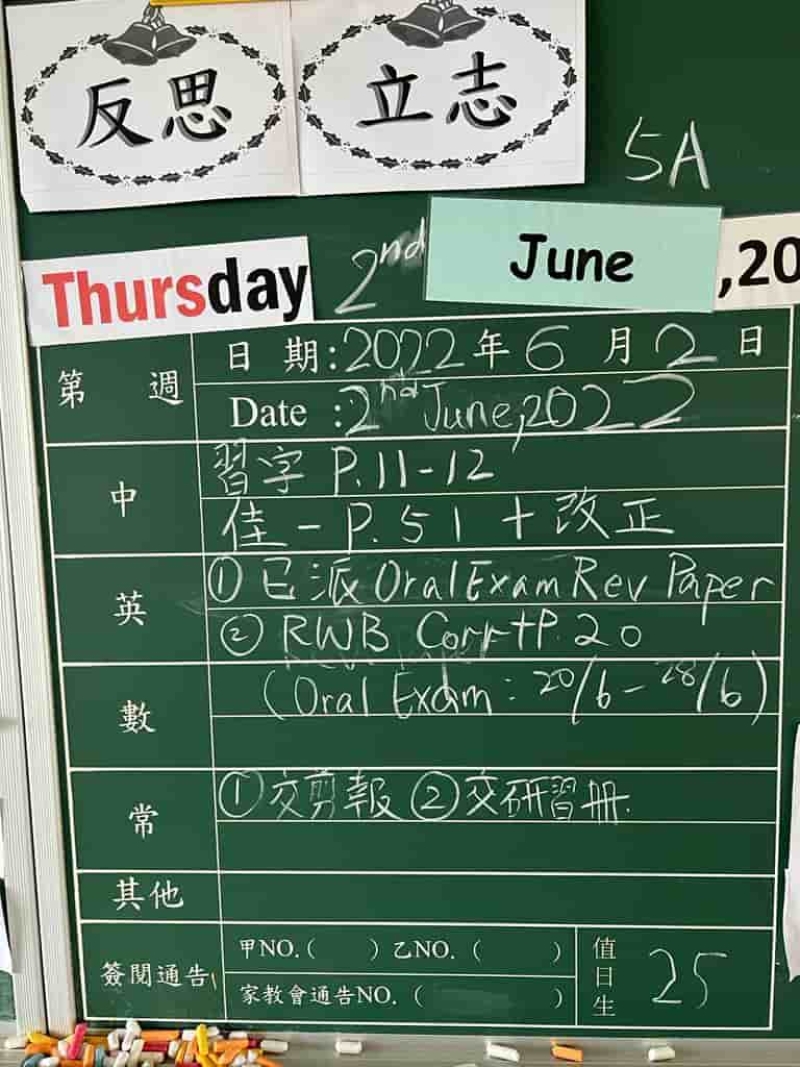 反思 立志
5A
Thursday 2nd June ,20
第 週
日 期:2022年6月2日
Date :2nd June,2022
中
習字 P.11-12
佳一P.51+改正
英
①已派 Oral Exam Rev Paper
② RWB Corr+P.20
數
(Oral Exam: 20/6-28/6)
常
①交剪報 ②交研習冊.
其他
簽閱通告
甲NO.( ) 乙NO. ( )
家教會通告NO. ( )
值日生 25